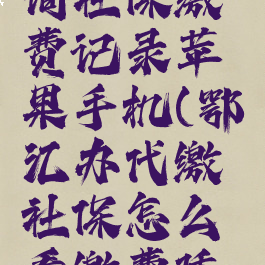 询社保缴
费记录苹
果手机(鄂
汇办代缴
社保怎么
看缴费